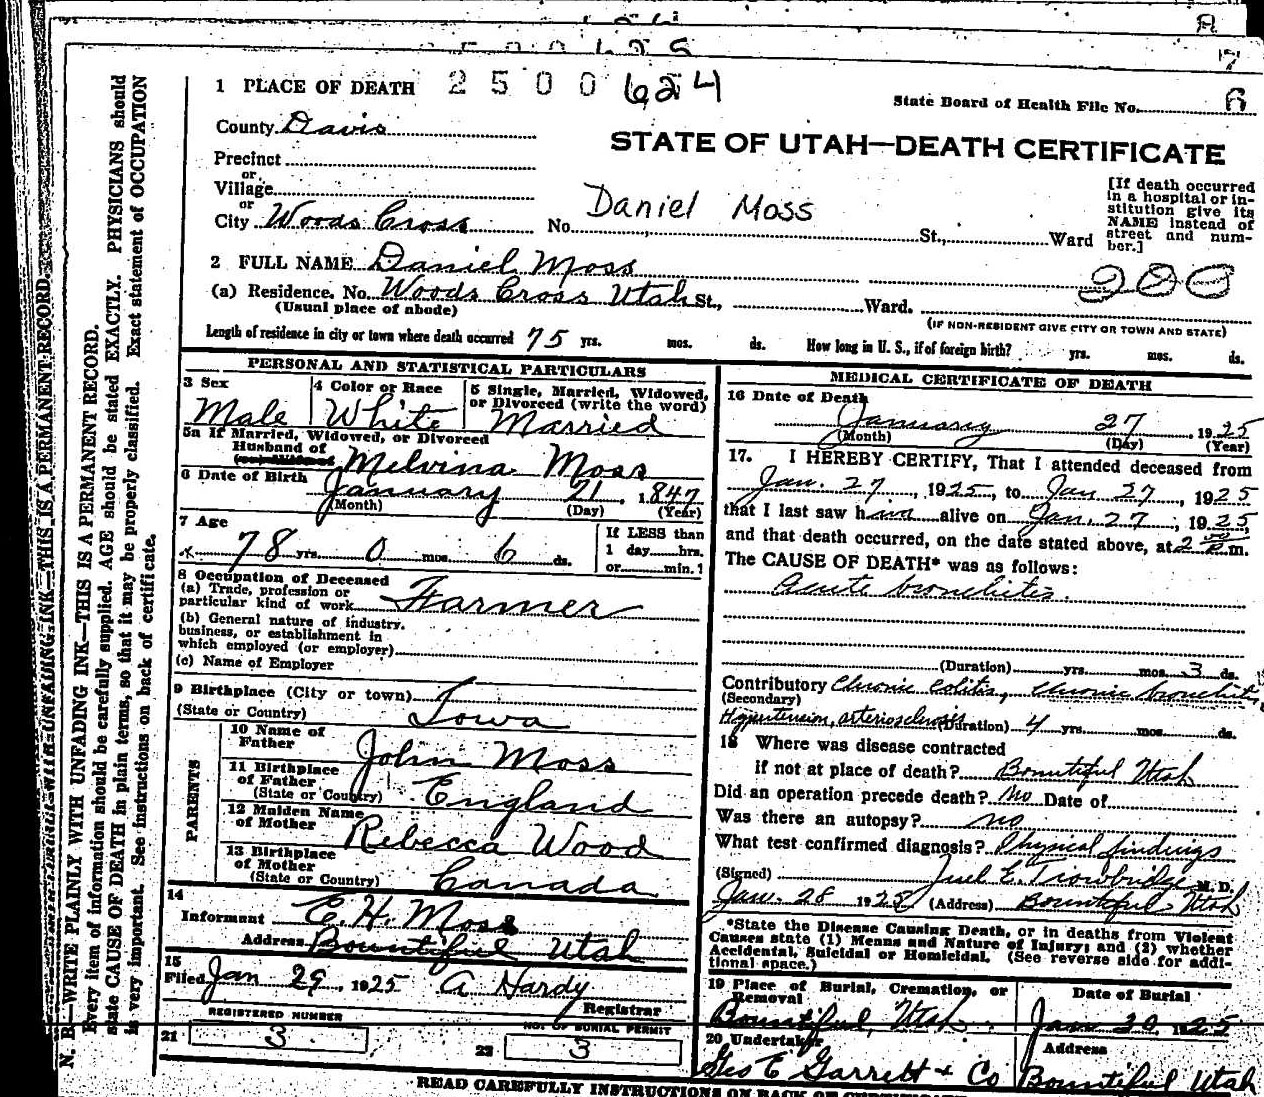 1 PLACE OF DEATH 2 5 0 0 624
State Board of Health File No. 6
County Davis
STATE OF UTAH—DEATH CERTIFICATE
Precinct
or
Village
or
City Woods Cross No. Daniel Moss St., Ward
[If death occurred in a hospital or institution give its NAME instead of street and number.]
2 FULL NAME Daniel Moss
200
(a) Residence. No. Woods Cross Utah St., Ward.
(Usual place of abode) (IF NON-RESIDENT GIVE CITY OR TOWN AND STATE)
Length of residence in city or town where death occurred 75 yrs. mos. ds. How long in U. S., if of foreign birth? yrs. mos. ds.
PERSONAL AND STATISTICAL PARTICULARS
3 Sex Male
4 Color or Race White
5 Single, Married, Widowed, or Divorced (write the word) Married
5a If Married, Widowed, or Divorced
Husband of Melvina Moss
6 Date of Birth January 21, 1847
(Month) (Day) (Year)
7 Age
78 yrs. 0 mos. 6 ds.
If LESS than
1 day hrs.
or min.?
8 Occupation of Deceased
(a) Trade, profession or
particular kind of work Farmer
(b) General nature of industry.
business, or establishment in
which employed (or employer)
(c) Name of Employer
9 Birthplace (City or town)
(State or Country) Iowa
PARENTS
10 Name of Father John Moss
11 Birthplace of Father (State or Country) England
12 Maiden Name of Mother Rebecca Wood
13 Birthplace of Mother (State or Country) Canada
14
Informant E. H. Moss
Address Bountiful Utah
15
Filed Jan 29, 1925 A Hardy
Registrar
REGISTERED NUMBER
21 3
NO. OF BURIAL PERMIT
22 3
MEDICAL CERTIFICATE OF DEATH
16 Date of Death
January 27, 1925
(Month) (Day) (Year)
17. I HEREBY CERTIFY, That I attended deceased from
Jan. 27, 1925, to Jan 27, 1925
that I last saw him alive on Jan. 27, 1925
and that death occurred, on the date stated above, at 2 m.
The CAUSE OF DEATH* was as follows:
Acute bronchitis.
(Duration) yrs. mos. 3 ds.
Contributory Chronic colitis, chronic bronchitis
(Secondary)
Hypertension, arteriosclerosis (Duration) 4 yrs. mos. ds.
18 Where was disease contracted
if not at place of death? Bountiful Utah
Did an operation precede death? No Date of
Was there an autopsy? no
What test confirmed diagnosis? Physical findings
(Signed) Juel E. Trowbridge M. D.
Jan. 28 1925 (Address) Bountiful Utah
*State the Disease Causing Death, or in deaths from Violent
Causes state (1) Means and Nature of Injury; and (2) whether
Accidental, Suicidal or Homicidal. (See reverse side for addi-
tional space.)
19 Place of Burial, Cremation, or Removal
Bountiful, Utah
Date of Burial
Jan 30, 1925
20 Undertaker
Geo E Garrett + Co
Address
Bountiful Utah
READ CAREFULLY INSTRUCTIONS ON BACK OF CERTIFICATE
N. B.—WRITE PLAINLY WITH UNFADING INK—THIS IS A PERMANENT RECORD.
Every item of information should be carefully supplied. AGE should be stated EXACTLY. PHYSICIANS should
state CAUSE OF DEATH in plain terms, so that it may be properly classified. Exact statement of OCCUPATION
is very important. See instructions on back of certificate.